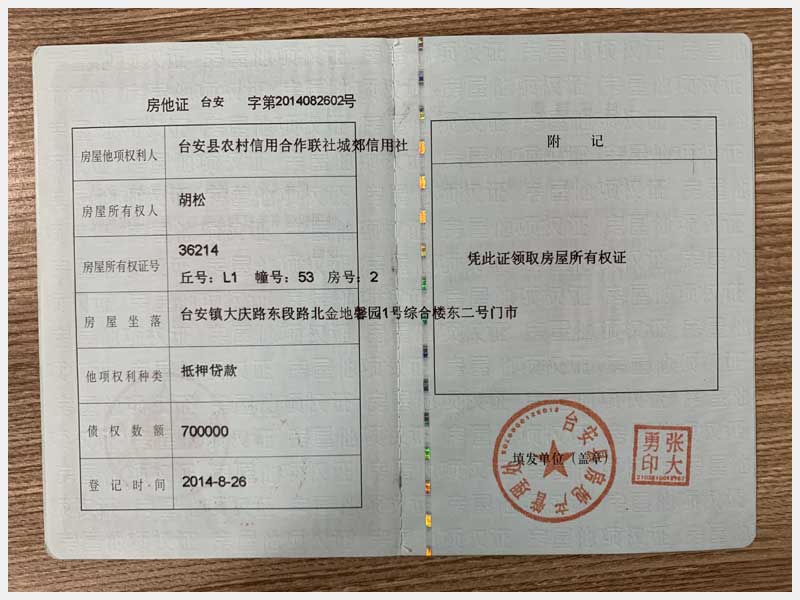 房他证 台安 字第2014082602号
房屋他项权利人 台安县农村信用合作联社城郊信用社
房屋所有权人 胡松
房屋所有权证号 36214
丘号：L1 幢号：53 房号：2
房屋坐落 台安镇大庆路东段路北金地馨园1号综合楼东二号门市
他项权利种类 抵押贷款
债权数额 700000
登记时间 2014-8-26
附 记
凭此证领取房屋所有权证
填发单位（盖章）
张大
勇印